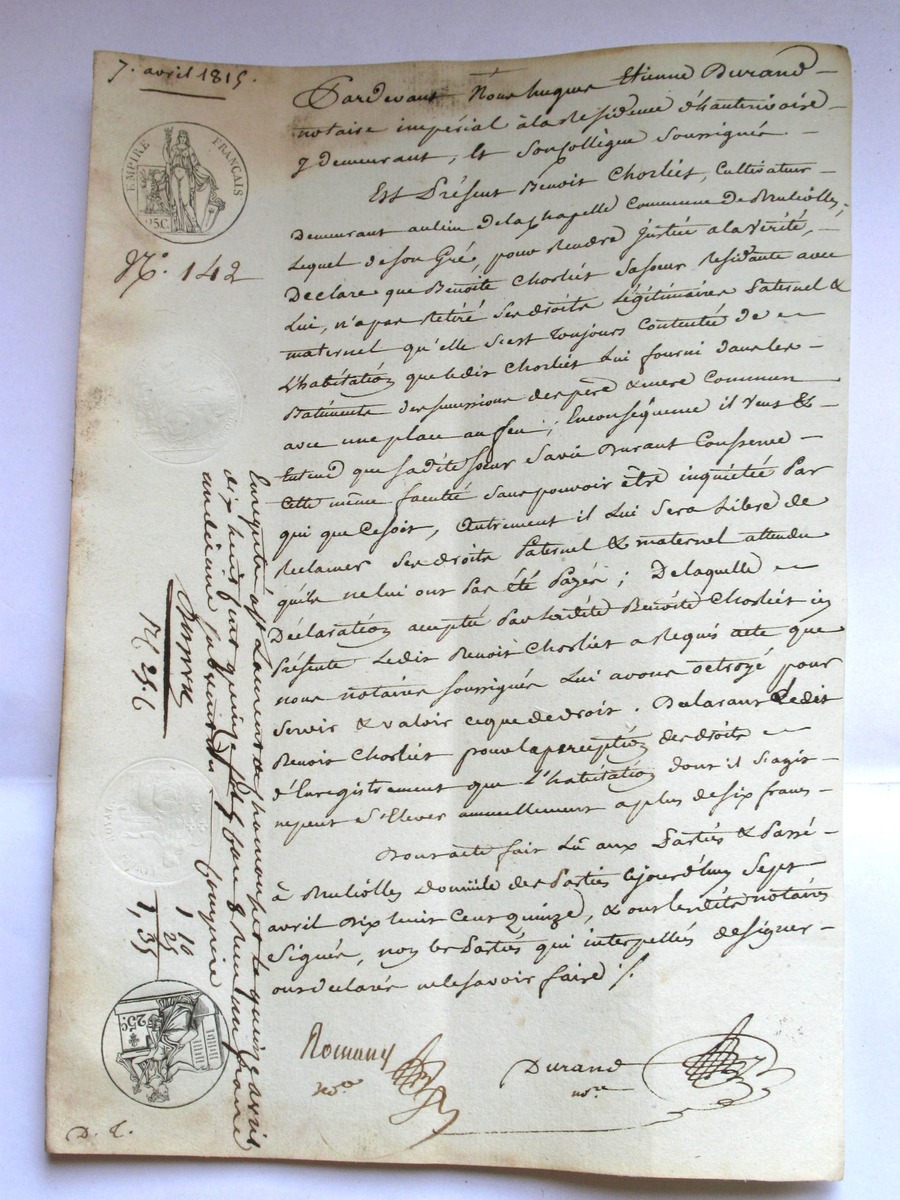 7. avril 1815.
EMPIRE FRANÇAIS
25C.
N.º 142
Pardevant Nous hugues Etienne Durand
notaire impérial à la Residence d'hauterivoire
y demeurant, et Son Collègue Soussignés
Est Présent Benoit Chorliét, Cultivateur
Demeurant au lieu de la Chapelle Commune de Brulliolles,
Lequel de son Gré, pour Rendre Justice a la Vérité,
Declare que Benoite Chorliét Sa Soeur Residante avec
Lui, n'a pas Retiré Ses droits Légitimaires Paternel &
maternel qu'elle s'est Toujours Contentée de
L'habitation que ledit Chorliét Lui fourni dans les
Batiments des successions des père & mere Commun
avec une place au feu; En conséquence il Veut &
Entend que sa dite Soeur Sa vie Durant Conserve
Cette même faculté Sans pouvoir être inquiétée Par
qui que Ce soit, Autrement il Lui Sera Libre de
Reclamer Ses droits Paternel & maternel attendu
qu'ils ne lui ont Pas été Payés; De laquelle
Déclaration accepté Par Ladite Benoite Chorliét ici
Présente Ledit Benoit Chorliét a Requis acte que
nous notaires Soussignés Lui avons octroyé pour
Servir & valoir ce que de droit. Declarant Ledit
Benoit Chorliét pour la perception des droits
d'Enregistrement que L'habitation dont il s'agit
ne peut S'Elever annuellement a plus de six francs
Dont acte fait Lû aux Parties & Passé
à Brulliolles Domicile des Parties Cejourd'huy Sept
avril Dix huit Cent quinze, & ont lesdits notaires
Signés, non les Parties qui interpellés de signer
ont declarés ne le savoir faire ./.
Romany
nre
Durand
nre.
Enregistré à St Laurent de Chamousset le quinze avril
dix huit cent quinze
1 10
25
1, 35
25c.
D. T.